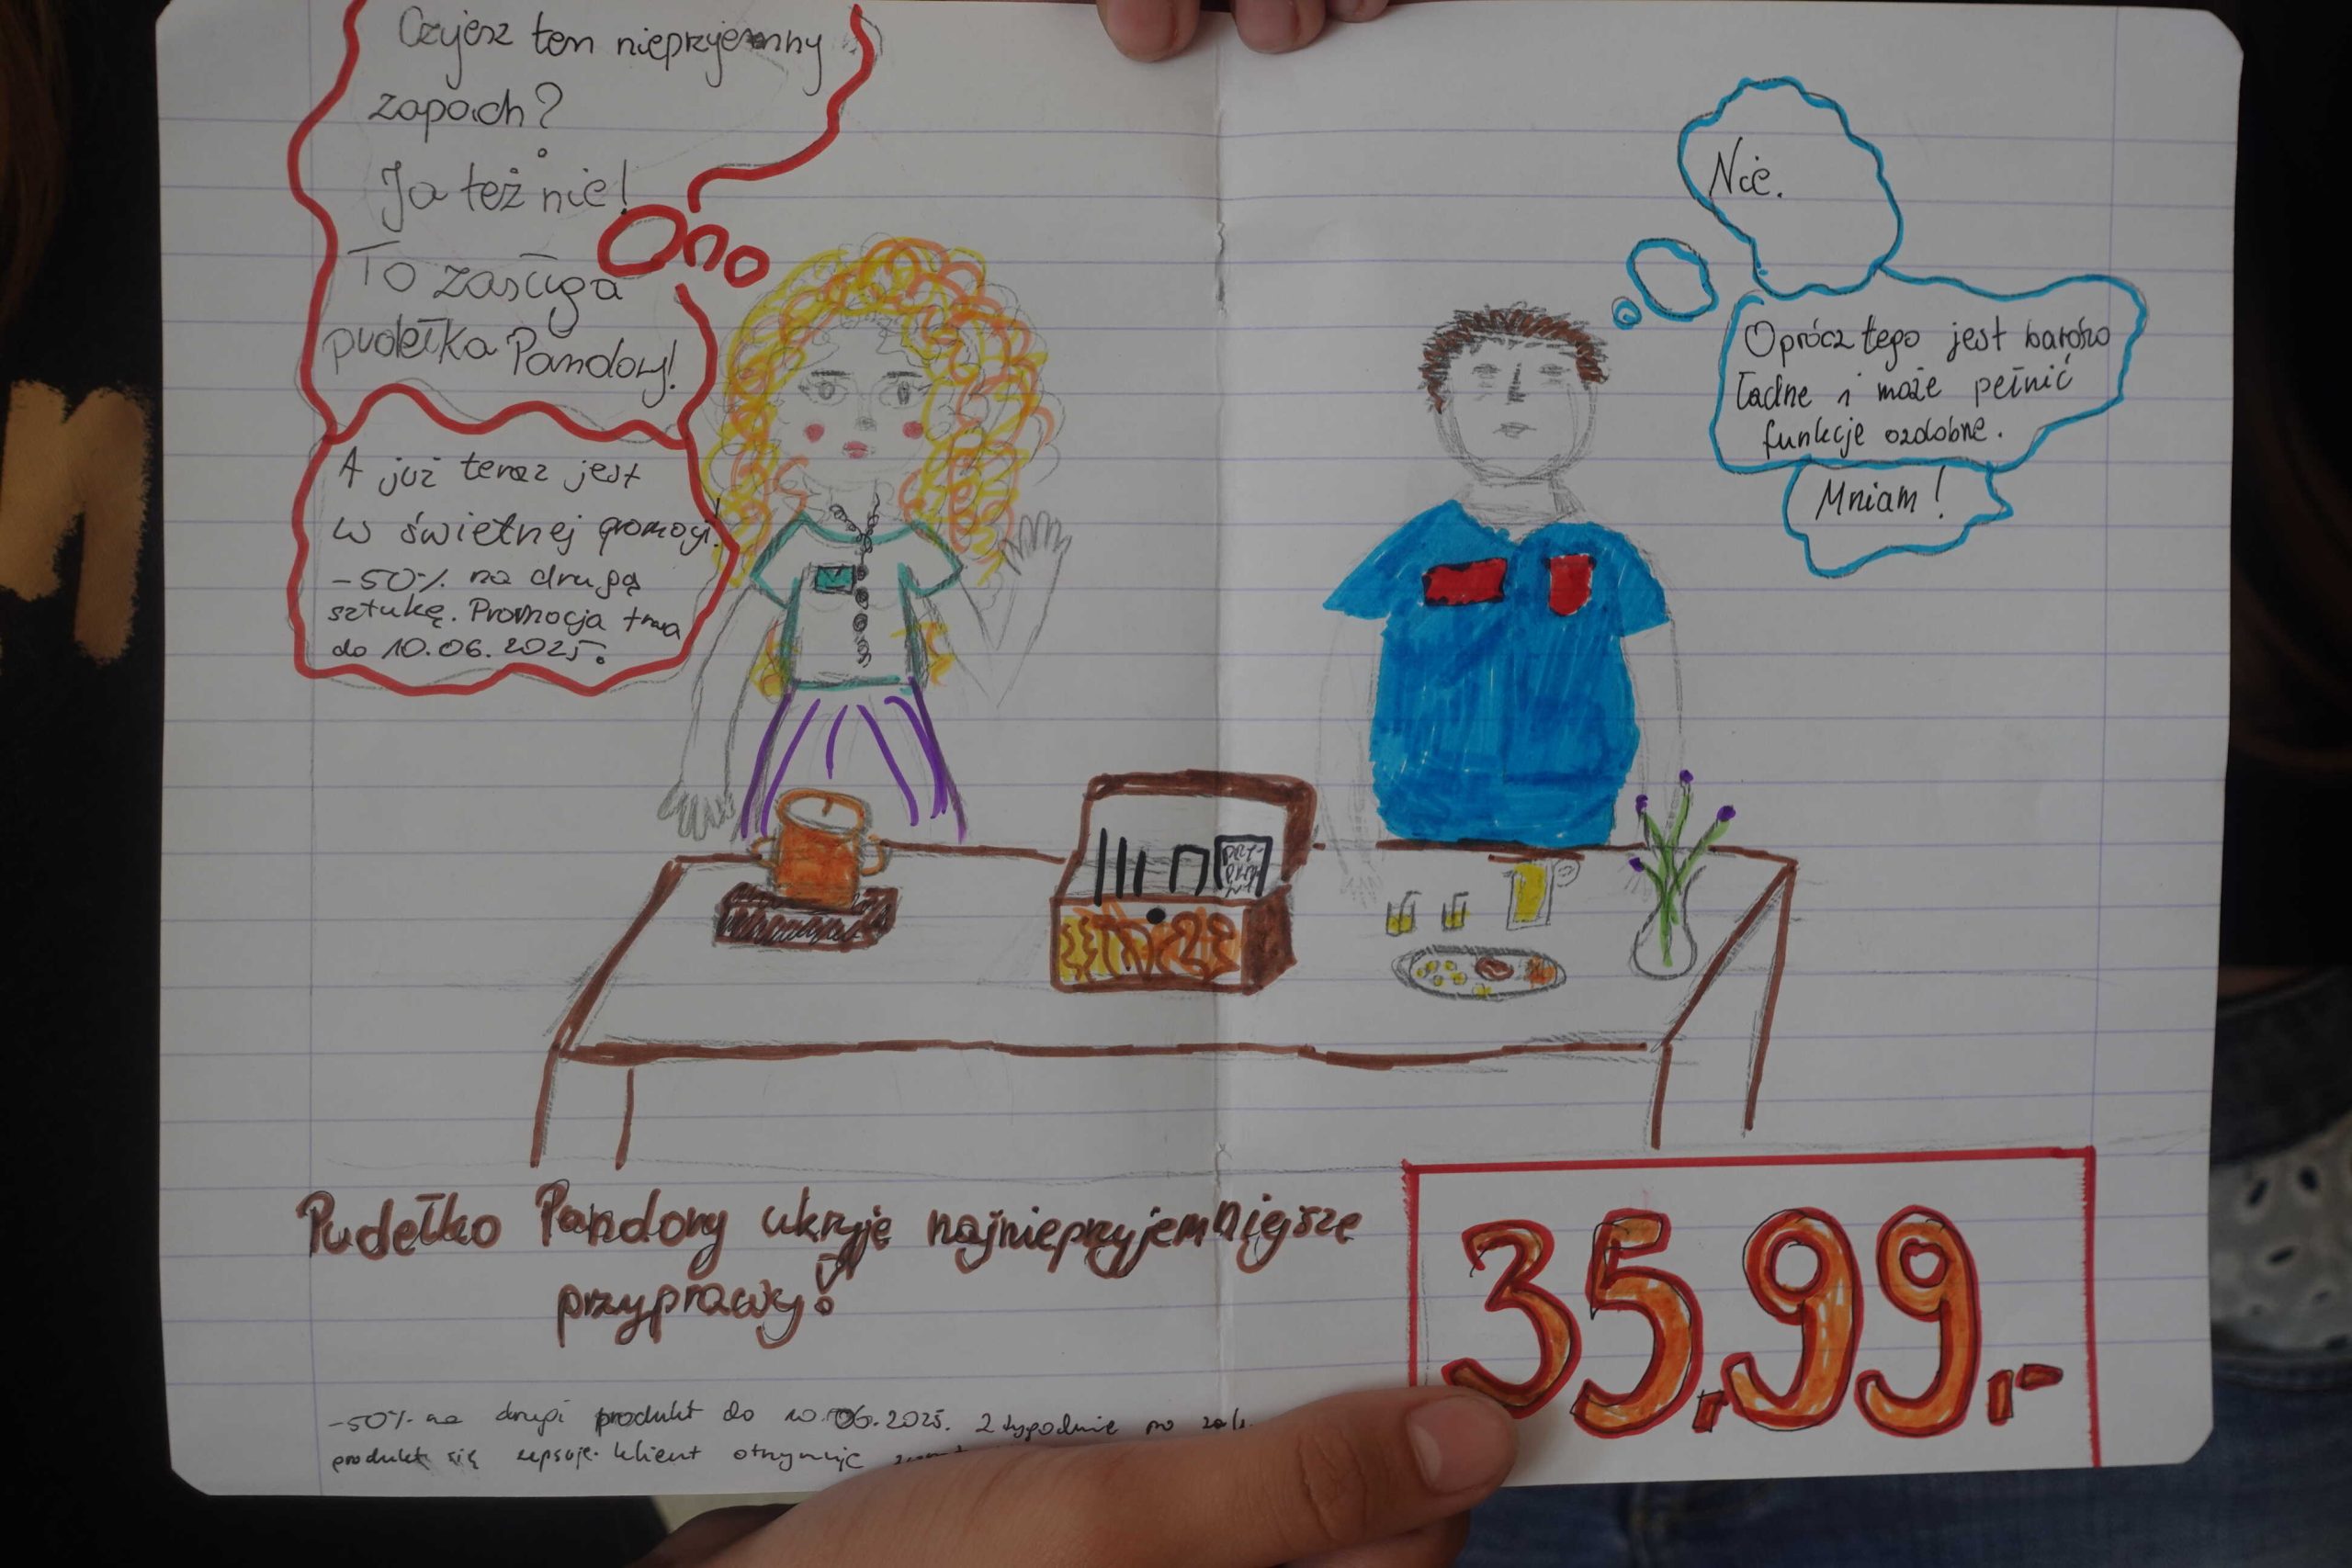 Czyjesz ten nieprzyjemny
zapach?
Ja też nie!
To zasługa
pudełka Pandory!
A już teraz jest
w świetnej promocji!
-50% na drugą
sztukę. Promocja trwa
do 10.06.2025.
Nie.
Oprócz tego jest bardzo
ładne i może pełnić
funkcje ozdobne.
Mniam!
PRZY-
PRA
WY
Pudełko Pandory ukryje najnieprzyjemniejsze
przyprawy!
35,99,-
-50% na drugi produkt do 10.06.2025. 2 tygodnie po
produkt się zepsuje. klient otrzymuje